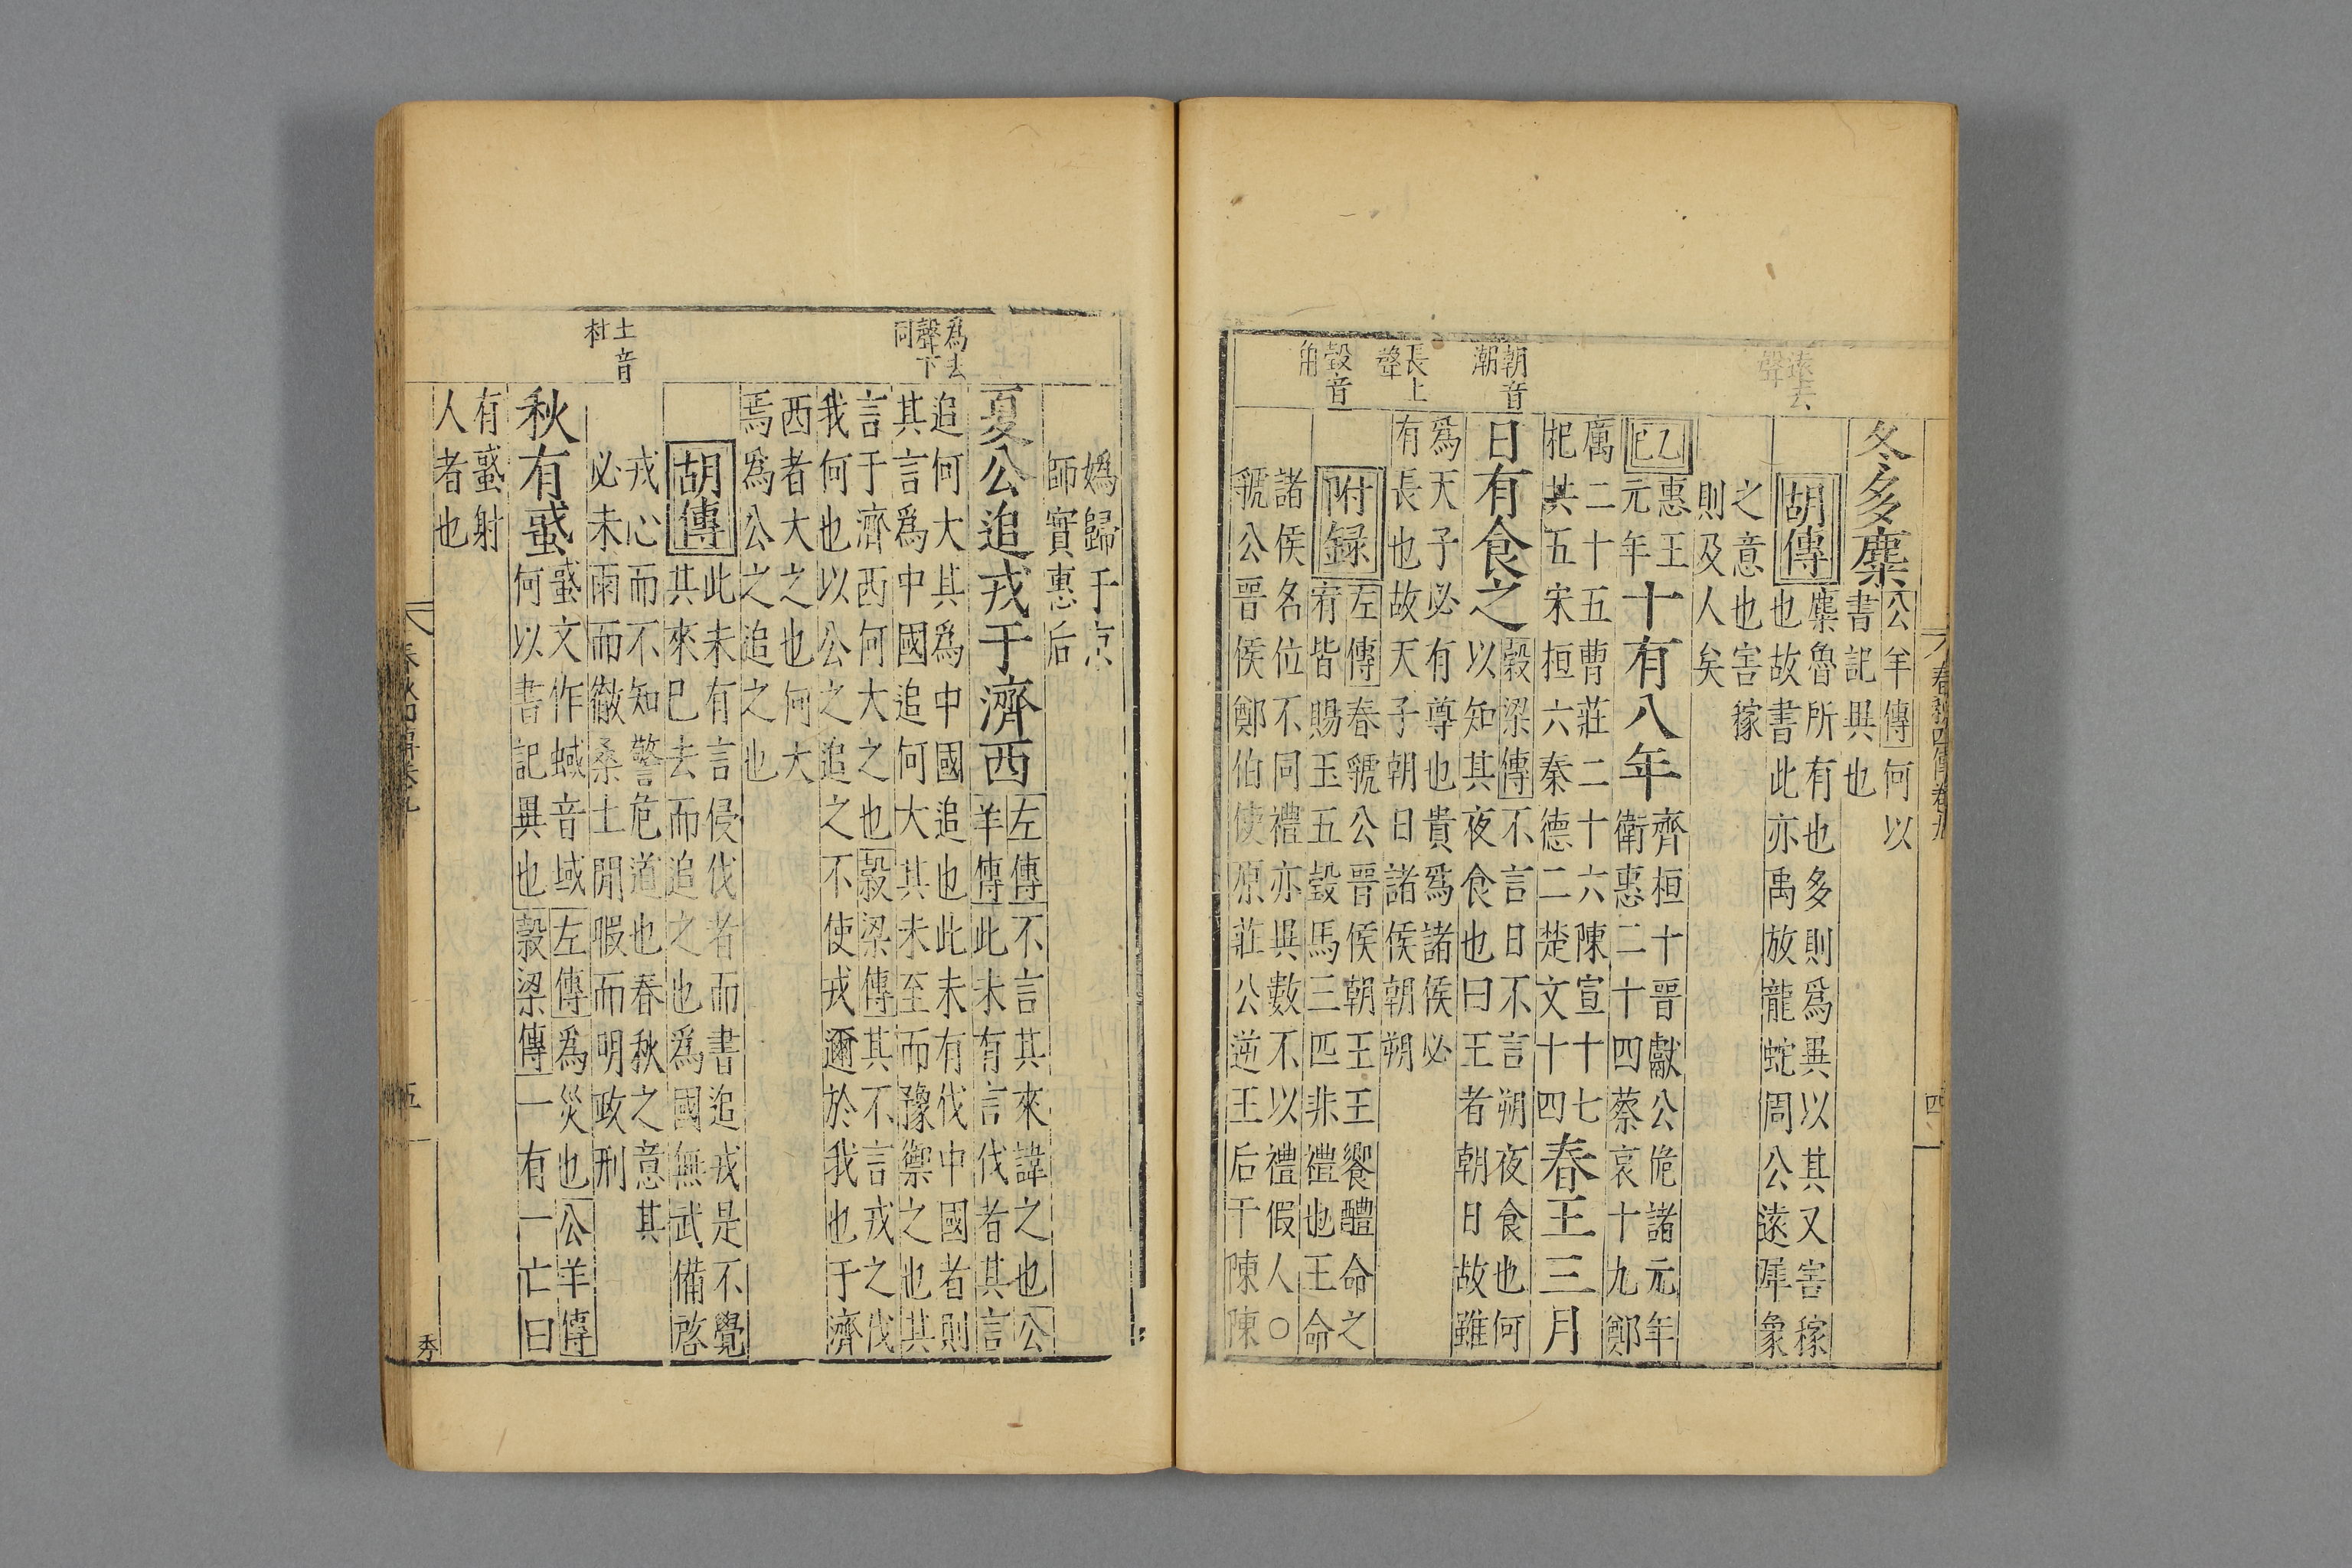 春秋四傳卷九
四
遠去
聲
朝音
潮
長上
聲
瑴音
角
冬多麋
公羊傳何以
書記異也
胡傳
麋魯所有也多則爲異以其又害稼
也故書此亦禹放龍蛇周公遠犀象
之意也害稼
則及人矣
乙巳
惠王
元年
十有八年
齊桓十晉獻公佹諸元年
衛惠二十四蔡哀十九鄭
厲二十五曹莊二十六陳宣十七
杞共五宋桓六秦德二楚文十四
春王三月
日有食之
穀梁傳不言日不言朔夜食也何
以知其夜食也曰王者朝日故雖
爲天子必有尊也貴爲諸侯必
有長也故天子朝日諸侯朝朔
附録
左傳春虢公晉侯朝王王饗醴命之
宥皆賜玉五瑴馬三匹非禮也王命
諸侯名位不同禮亦異數不以禮假人○
虢公晉侯鄭伯使原莊公逆王后于陳陳
爲去
聲下
同
土音
杜
媯歸于京
師實惠后
夏公追戎于濟西
左傳不言其來諱之也公
羊傳此未有言伐者其言
追何大其爲中國追也此未有伐中國者則
其言爲中國追何大其未至而豫禦之也其
言于濟西何大之也穀梁傳其不言戎之伐
我何也以公之追之不使戎邇於我也于濟
西者大之也何大
焉爲公之追之也
胡傳
此未有言侵伐者而書追戎是不覺
其來已去而追之也爲國無武備啓
戎心而不知警危道也春秋之意其
必未雨而徹桑土閒暇而明政刑
秋有蜮
蜮文作蜮音域左傳爲災也公羊傳
何以書記異也穀梁傳一有一亡曰
有蜮射
人者也
春秋四傳卷九
五
秀